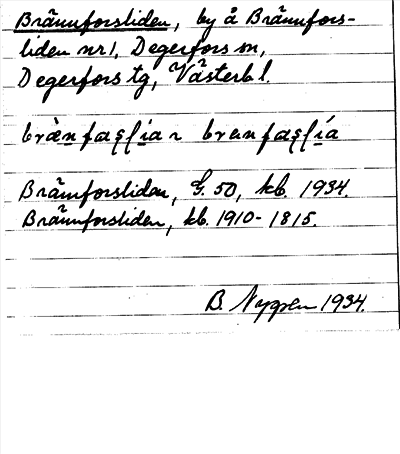 Brännforsliden, by å Brännfors-
liden nr 1, Degerfors sn,
Degerfors tg, Västerb l.
Brännforsliden, G. 50, kb. 1934.
Brännforsliden, kb. 1910-1815.
B. Nygren 1934.